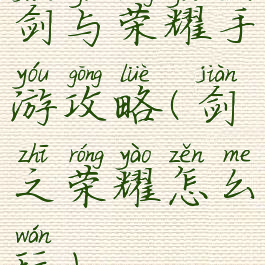 剑与荣耀手
yóu gōng lüè jiàn
游攻略(剑
zhī róng yào zěn me
之荣耀怎么
wán
玩)